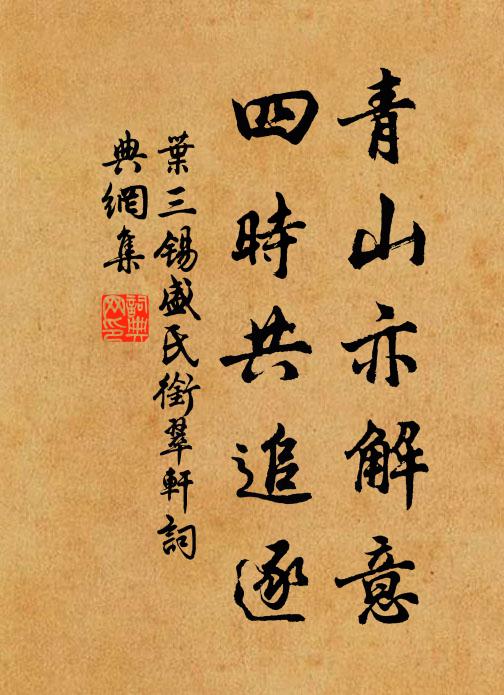 青山亦解意
四時共追逐
葉三錫盛氏銜翠軒詞
典網集
詞典網印